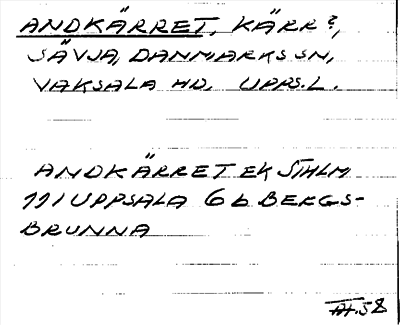 ANDKÄRRET, KÄRR?,
SÄVJA, DANMARKS SN,
VAKSALA HD, UPPS.L.
ANDKÄRRET EK STHLM
111 UPPSALA 6 b BERGS-
BRUNNA
58